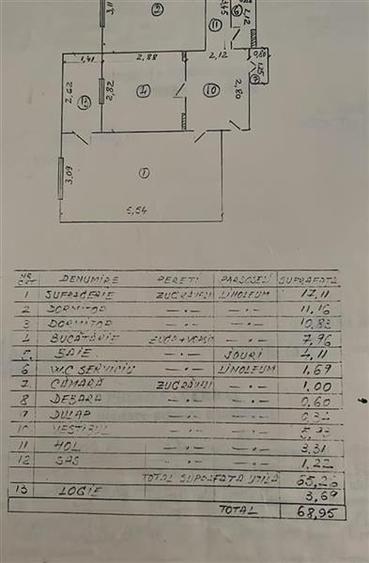 3,11
3,45
2,12
11
9
0,60
1,41
2,88
2,12
1,25
2,62
2,82
4
10
2,80
3,09
1
5,54
NR CRT DENUMIRE PERETI PARDOSELI SUPRAFATA
1 SUFRAGERIE ZUGRAVELI LINOLEUM 17,11
2 DORMITOR —·— —·— 11,16
3 DORMITOR —·— —·— 10,82
4 BUCĂTĂRIE ZUG+VOPSIT —·— 7,96
5 BAIE —·— 4,11
6 W.C SERVICIU —·— LINOLEUM 1,69
7 CĂMARA ZUGRĂVELI —·— 1,00
8 DEBARA —·— —·— 0,60
9 DULAP —·— —·—
10 VESTIBUL —·— —·—
11 HOL —·— —·— 3,31
12 SAS —·— —·— 1,22
TOTAL SUPRAFATA UTILA 65,26
13 LOGIE 3,69
TOTAL 68,95